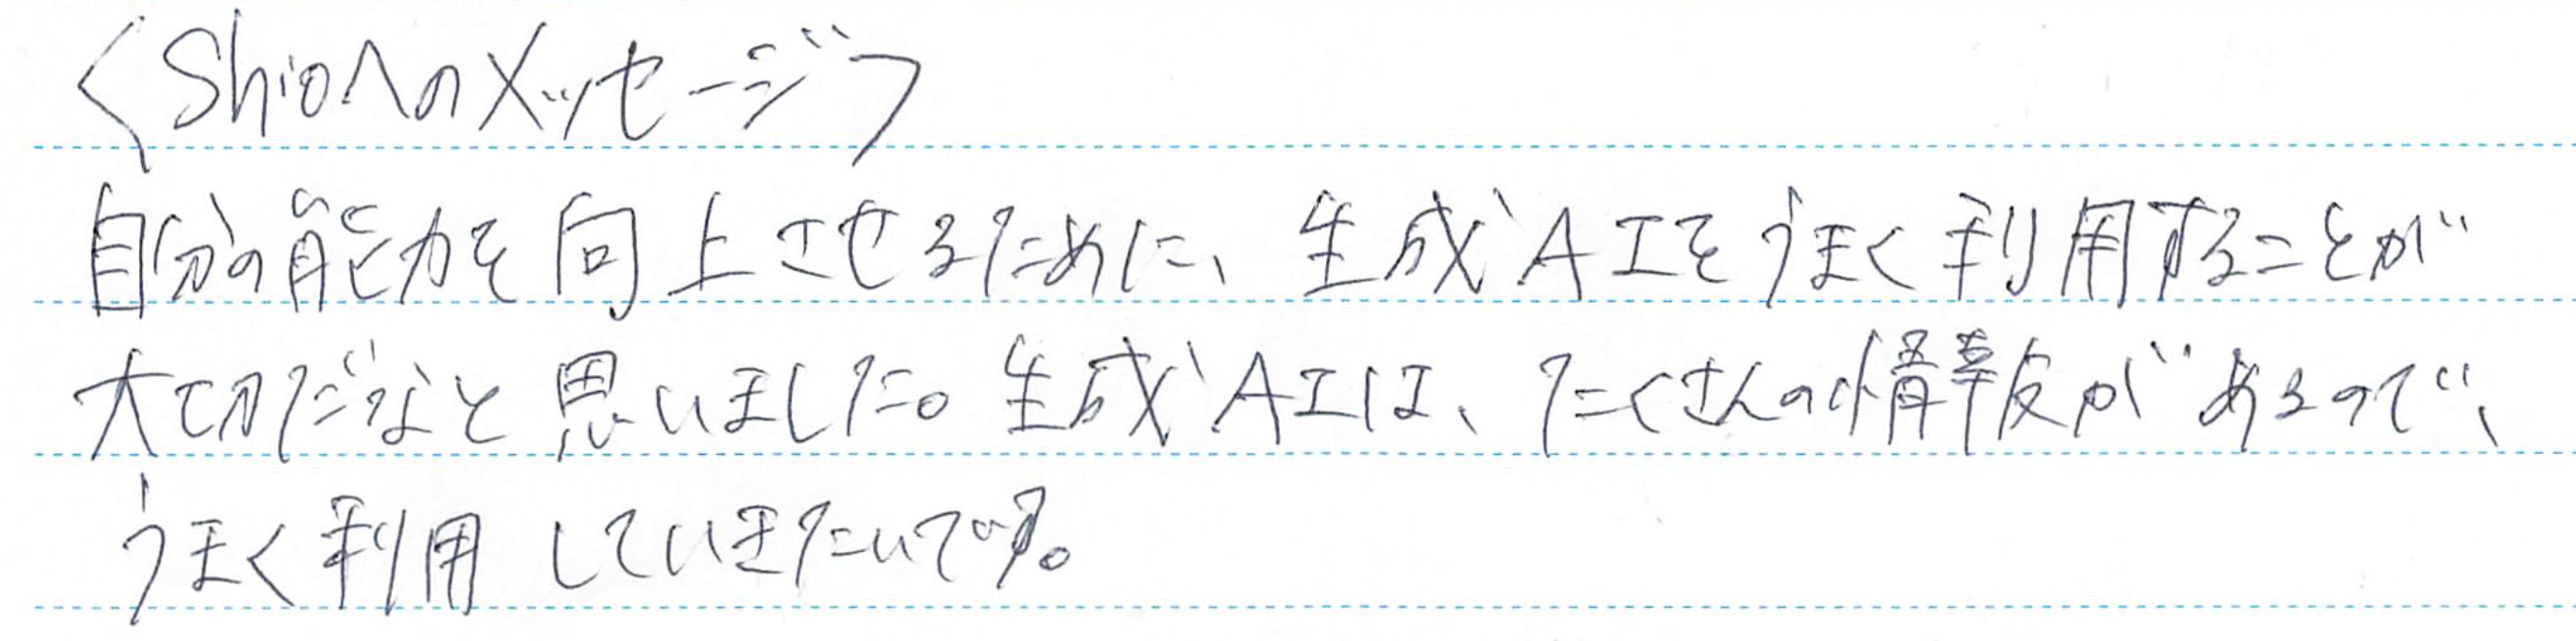 <Shioへのメッセージ>
自分の能力を向上させるために、生成AIをうまく利用することが
大切だなと思いました。生成AIは、たくさんの情報があるので、
うまく利用していきたいです。